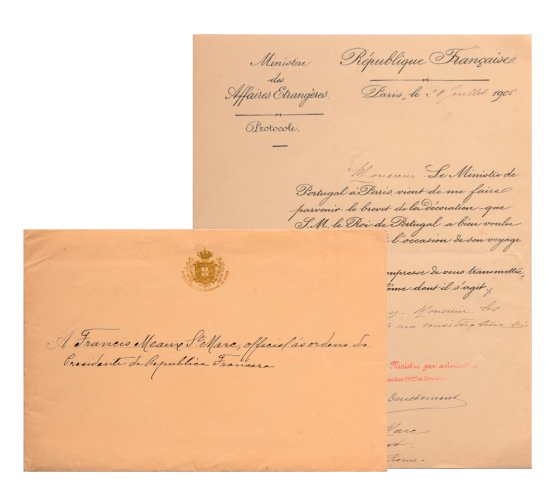 Ministère
des
Affaires Etrangères.
Protocole.
République Française.
Paris, le 28 Juillet 1906
Monsieur Le Ministre de
Portugal à Paris vient de me faire
parvenir le brevet de la décoration que
S.M. le Roi de Portugal a bien voulu
l'occasion de son voyage
empresse de vous transmettre,
dont il s'agit,
Monsieur, les
ma considération très
Ministre par autorisation
A Francis Meaux St Marc, official ás ordens do
Presidente da Republica Franceza